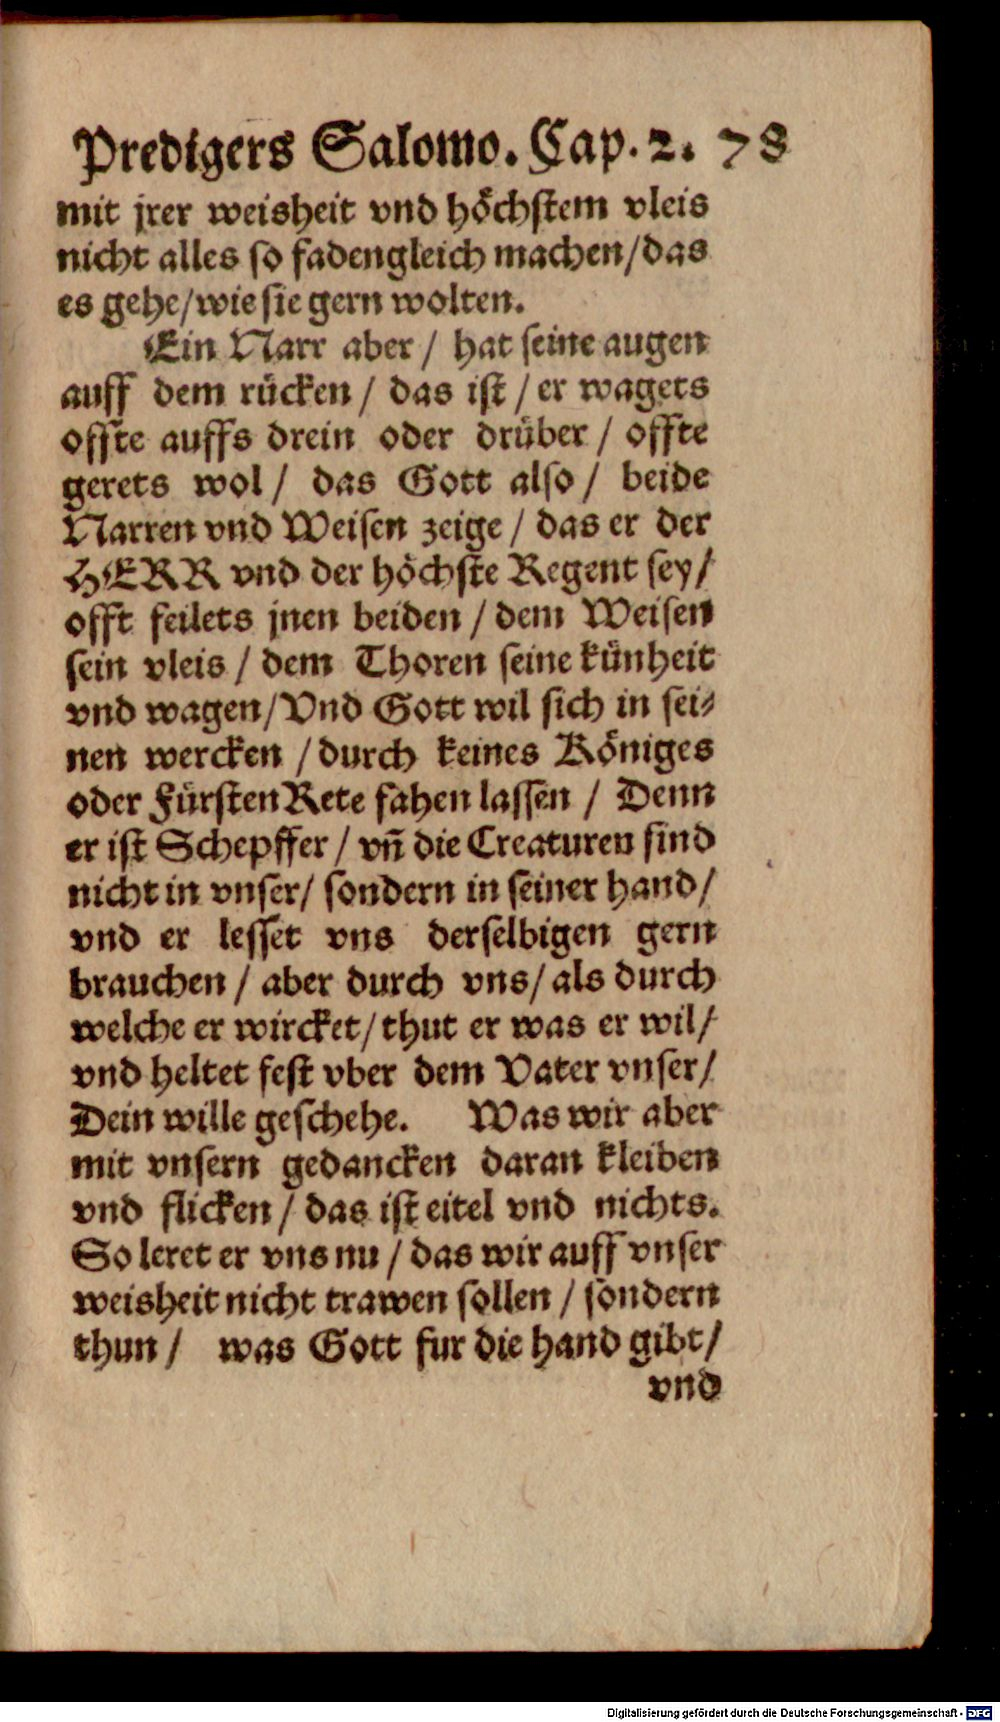 Predigers Salomo. Cap. 2. 78
mit jrer weisheit vnd höchstem vleis
nicht alles so fadengleich machen/das
es gehe/wie sie gern wolten.
Ein Narr aber/ hat seine augen
auff dem rücken/ das ist/er wagets
offte auffs drein oder drüber/ offte
gerets wol/ das Gott also/ beide
Narren vnd Weisen zeige/das er der
HERR vnd der höchste Regent sey/
offt feilets jnen beiden/dem Weisen
sein vleis/dem Thoren seine künheit
vnd wagen/Vnd Gott wil sich in sei-
nen wercken/durch keines Königes
oder Fürsten Rete fahen lassen/ Denn
er ist Schepffer/vñ die Creaturen sind
nicht in vnser/ sondern in seiner hand/
vnd er lesset vns derselbigen gern
brauchen/ aber durch vns/als durch
welche er wircket/thut er was er wil/
vnd heltet fest vber dem Vater vnser/
Dein wille geschehe. Was wir aber
mit vnsern gedancken daran kleiben
vnd flicken/das ist eitel vnd nichts.
So leret er vns nu/das wir auff vnser
weisheit nicht trawen sollen/sondern
thun/ was Gott fur die hand gibt/
vnd
Digitalisierung gefördert durch die Deutsche Forschungsgemeinschaft - DFG